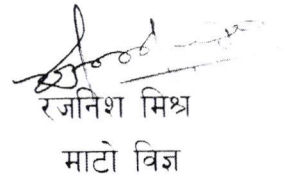 रजनिश मिश्र
माटो विज्ञ